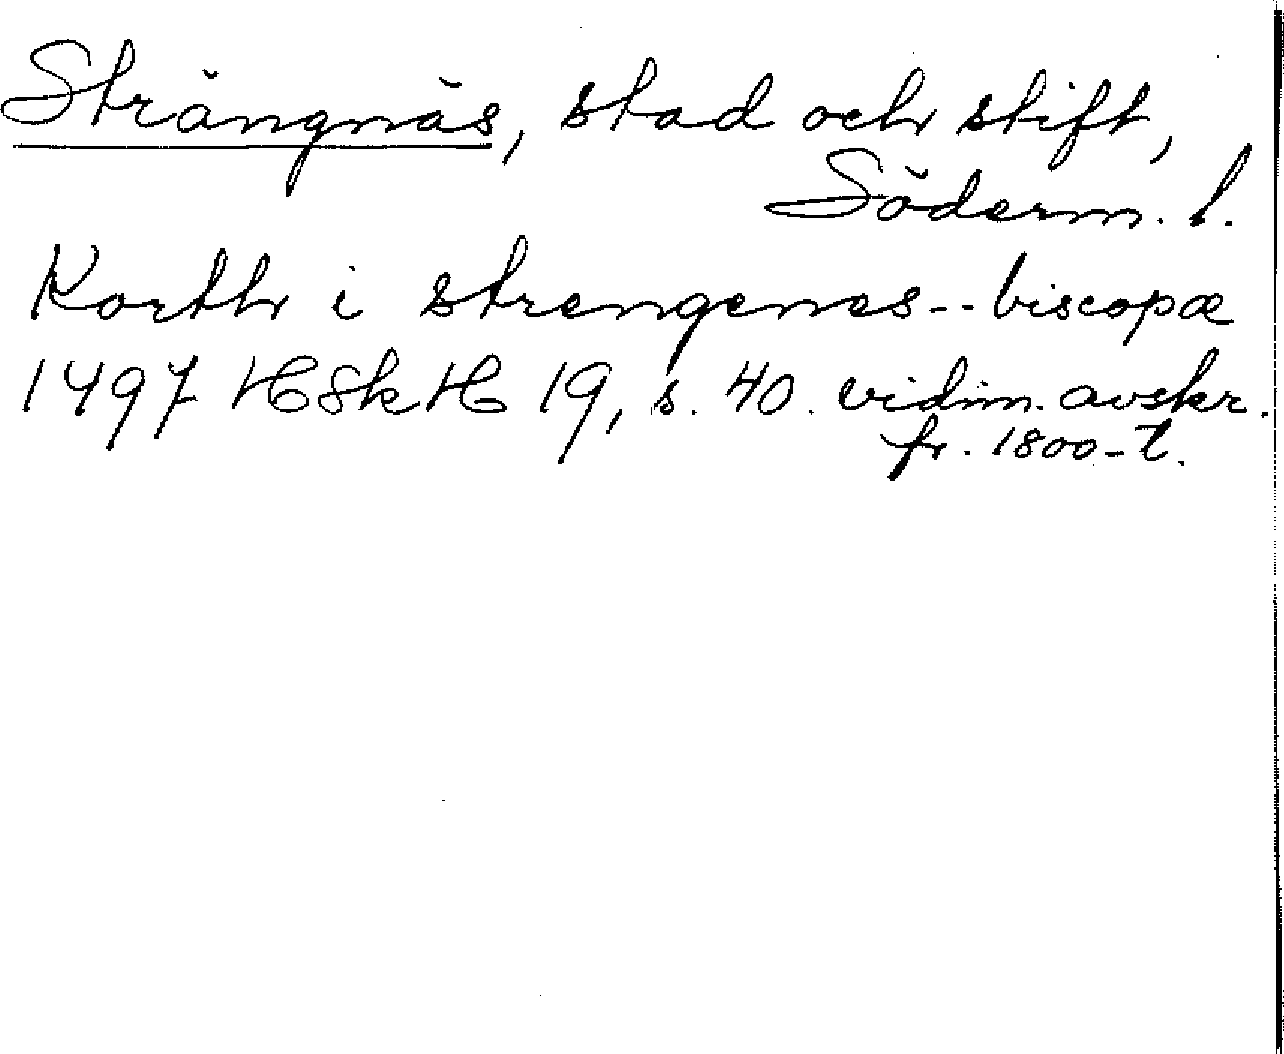 Strängnäs, stad och stift,
Söderm. l.
Korth i strengenes -- biscopæ
1497 HSkH 19, s. 40. vidim. avskr.
fr. 1800-t.